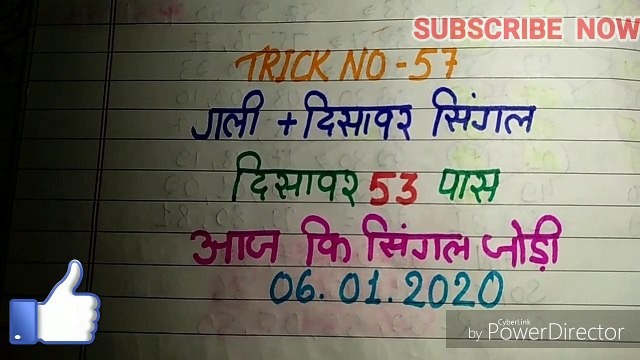 SUBSCRIBE NOW
TRICK NO-57
गली + दिसावर सिंगल
दिसावर 53 पास
आज कि सिंगल जोड़ी
06.01.2020
CyberLink
by PowerDirector